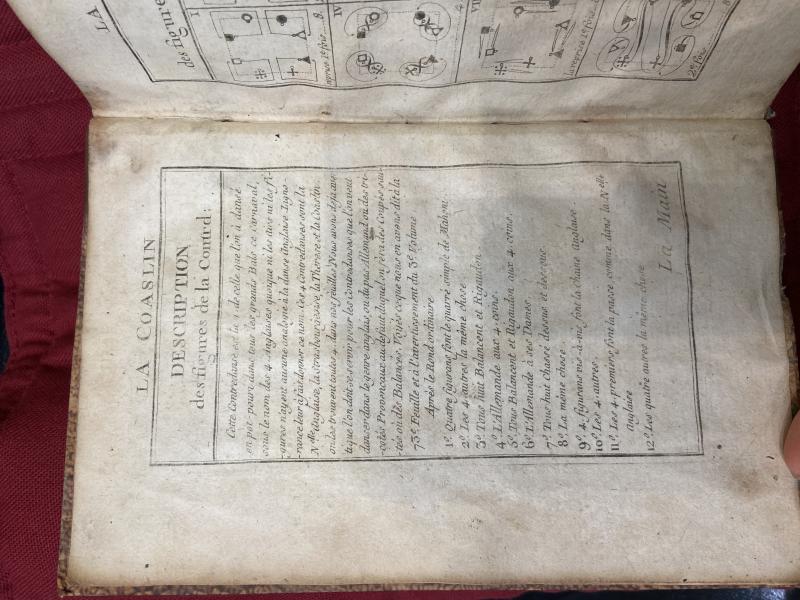 LA COASLIN
DESCRIPTION
des figures de la Contrd:
Cette Contredanse est la 1 de celle que l'on à dansé
en pot-pouri dans tous les grands Bals ce carnaval,
sous le nom des 4 Anglaises quoique ni les airs ni les fi-
-gures n'ayent aucune analogie à la danse Anglaise l'igno-
-rance leur à fait donner ce nom. Ces 4 Contredanses sont la
Nlle Anglaise, la Strasbourgeoise, la Therese et la Coaslin.
on les trouvent toutes 4 dans nos feuilles Nous avons déja
que l'on doit se servir pour les Contredanses que l'on veut
danser dans le genre anglais ou du pas Allemand ou des tri-
-cotés Provencaux au défaut duquel on fera des Coupés
-tés ou Dés Balancés. Voyés ce que nous en avons dit à la
73e Feuille et à l'avertissement du 3e Volume
Après le Rond ordinaire
1o Quatre figurans font le quarre simple de Mahoni
2o Les 4 autres la même chose
3o Tous huit Balancent et Rigaudon
4o L'Allemande aux 4 coins.
5o Tous Balancent et Rigaudon aux 4 coins.
6o L'Allemande à ses Dames
7o Tous huit Chassé dessus et dessous.
8o La même chose.
9o 4. figurans vis-à-vis font la chaine anglaise
10o Les 4 autres.
11o Les 4 premiers font la passe comme dans la Nvelle
anglaise
12o Les quatre autres la même chose
La Main
LA
des figures
I
8.
IV
4.
VII
reprise 1e fois.
la reprise 1e fois
8
2e fois